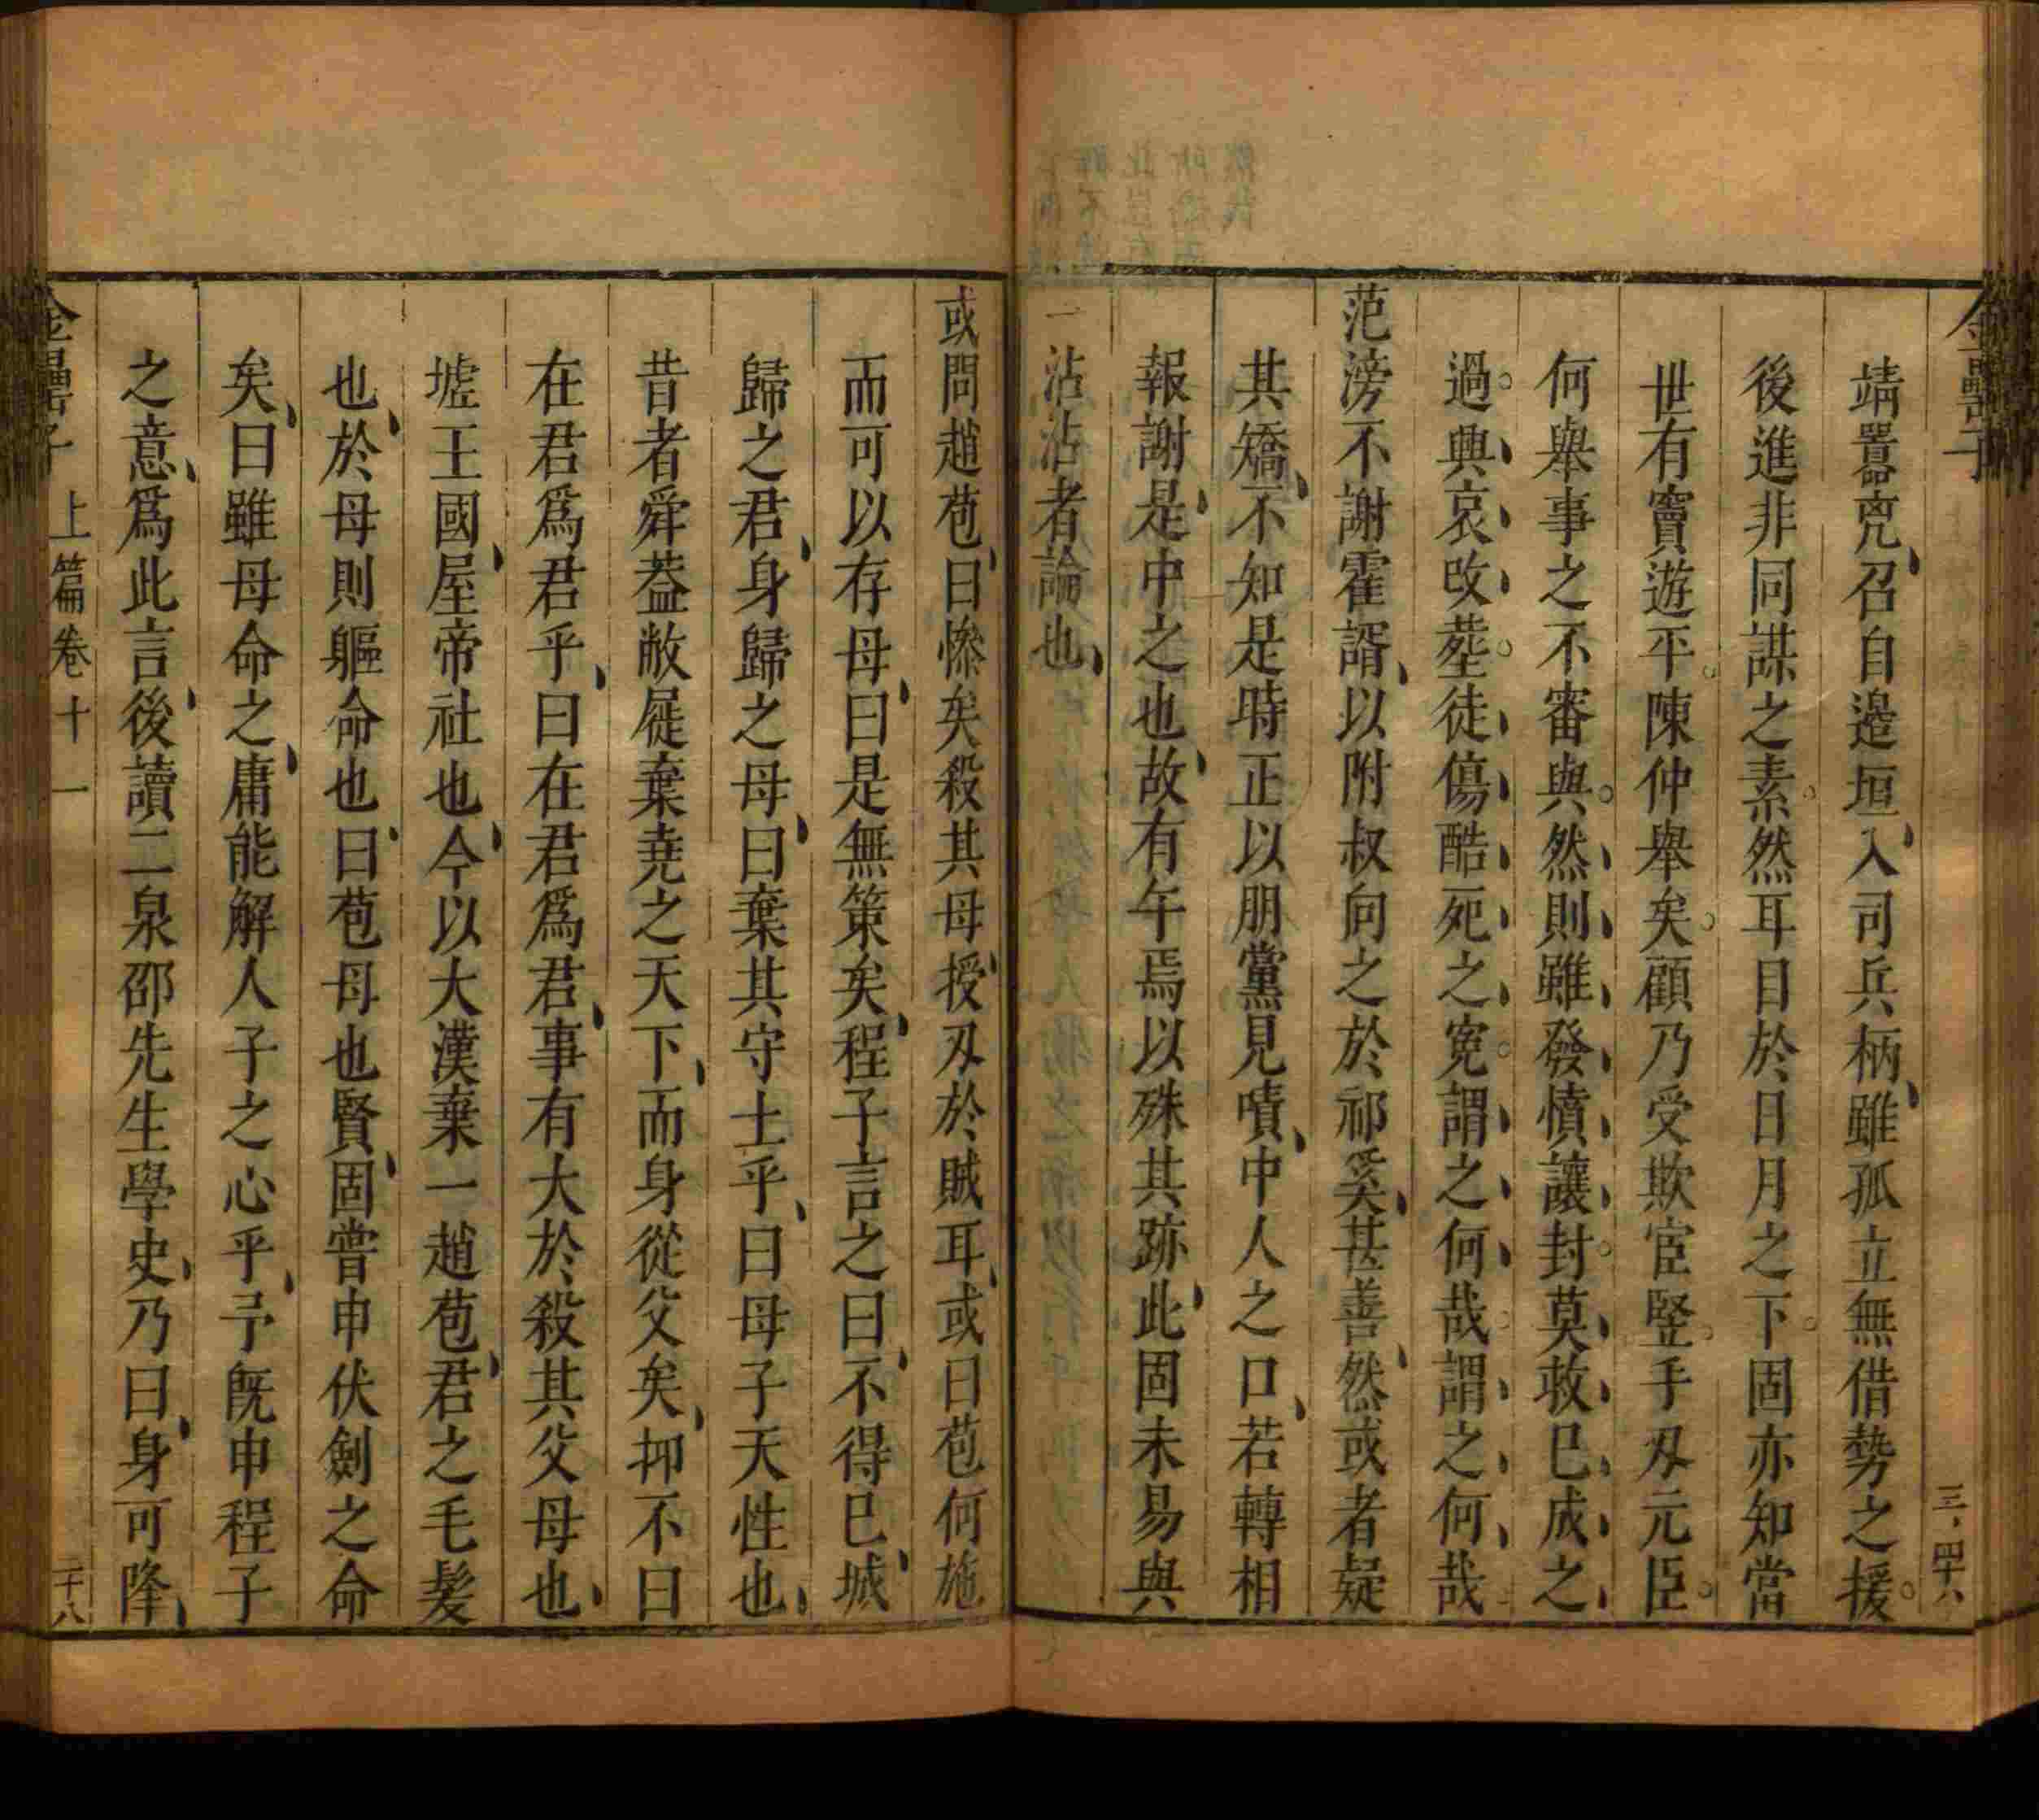 金罍子
三、四十八
靖囂兇召自邉垣入司兵柄雖孤立無借勢之援
後進非同謀之素然耳目於日月之下固亦知當
世有竇遊平陳仲舉矣顧乃受欺宦竪手刄元臣
何舉事之不審與然則雖發憤讓封莫救已成之
過興哀改塟徒傷酷死之寃謂之何哉謂之何哉
范滂不謝霍諝以附叔向之於祁奚甚善然或者疑
其矯不知是時正以朋黨見嘖中人之口若轉相
報謝是中之也故有午焉以殊其跡此固未易與
沾沾者論也
或問趙苞曰慘矣殺其母授刄於賊耳或曰苞何施
而可以存母曰是無策矣程子言之曰不得已城
歸之君身歸之母曰棄其守土乎曰母子天性也
昔者舜葢敝屣棄堯之天下而身從父矣抑不曰
在君爲君乎曰在君爲君事有大於殺其父母也
墟王國屋帝社也今以大漢棄一趙苞君之毛髮
也於母則軀命也曰苞母也賢固嘗申伏劍之命
矣曰雖母命之庸能解人子之心乎予旣申程子
之意爲此言後讀二泉邵先生學史乃曰身可降
金罍子 上篇卷十一 二十八